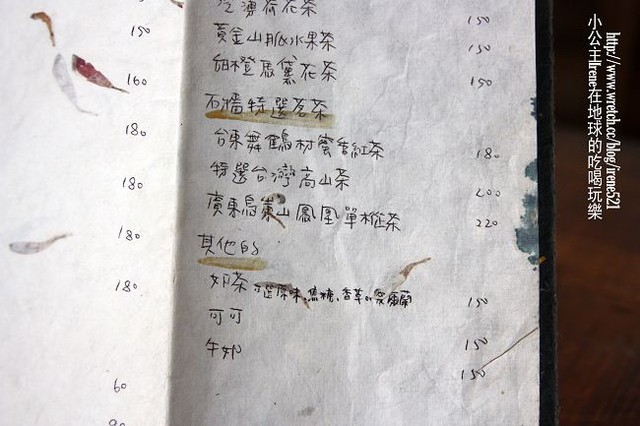 150
160
180
180
180
180
60
荷花茶 150
黃金山脈水果茶 150
甜橙晨黛花茶 150
石牆特選茗茶
台東舞鶴村蜜香紅茶 180
特選台灣高山茶 200
廣東烏崬山鳳凰單樅茶 220
其他的
奶茶 可選原味、焦糖、香草or愛爾蘭 150
可可 150
牛奶 150
小公主Irene在地球的吃喝玩樂
http://www.wretch.cc/blog/irene521